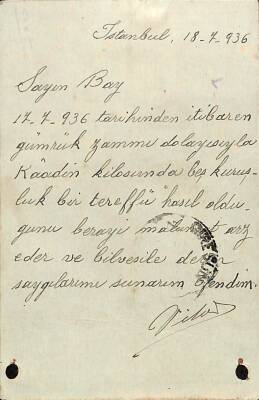 Istanbul, 18-7-936
Sayın Bay
17-7-936 tarihinden itibaren
gümrük zammı dolayısıyla
Kâadin kilosunda beş kuruş-
luk bir tereffü hasıl oldu-
ğunu berayi malumat arz
eder ve bilvesile derin
saygılarımı sunarım Efendim.